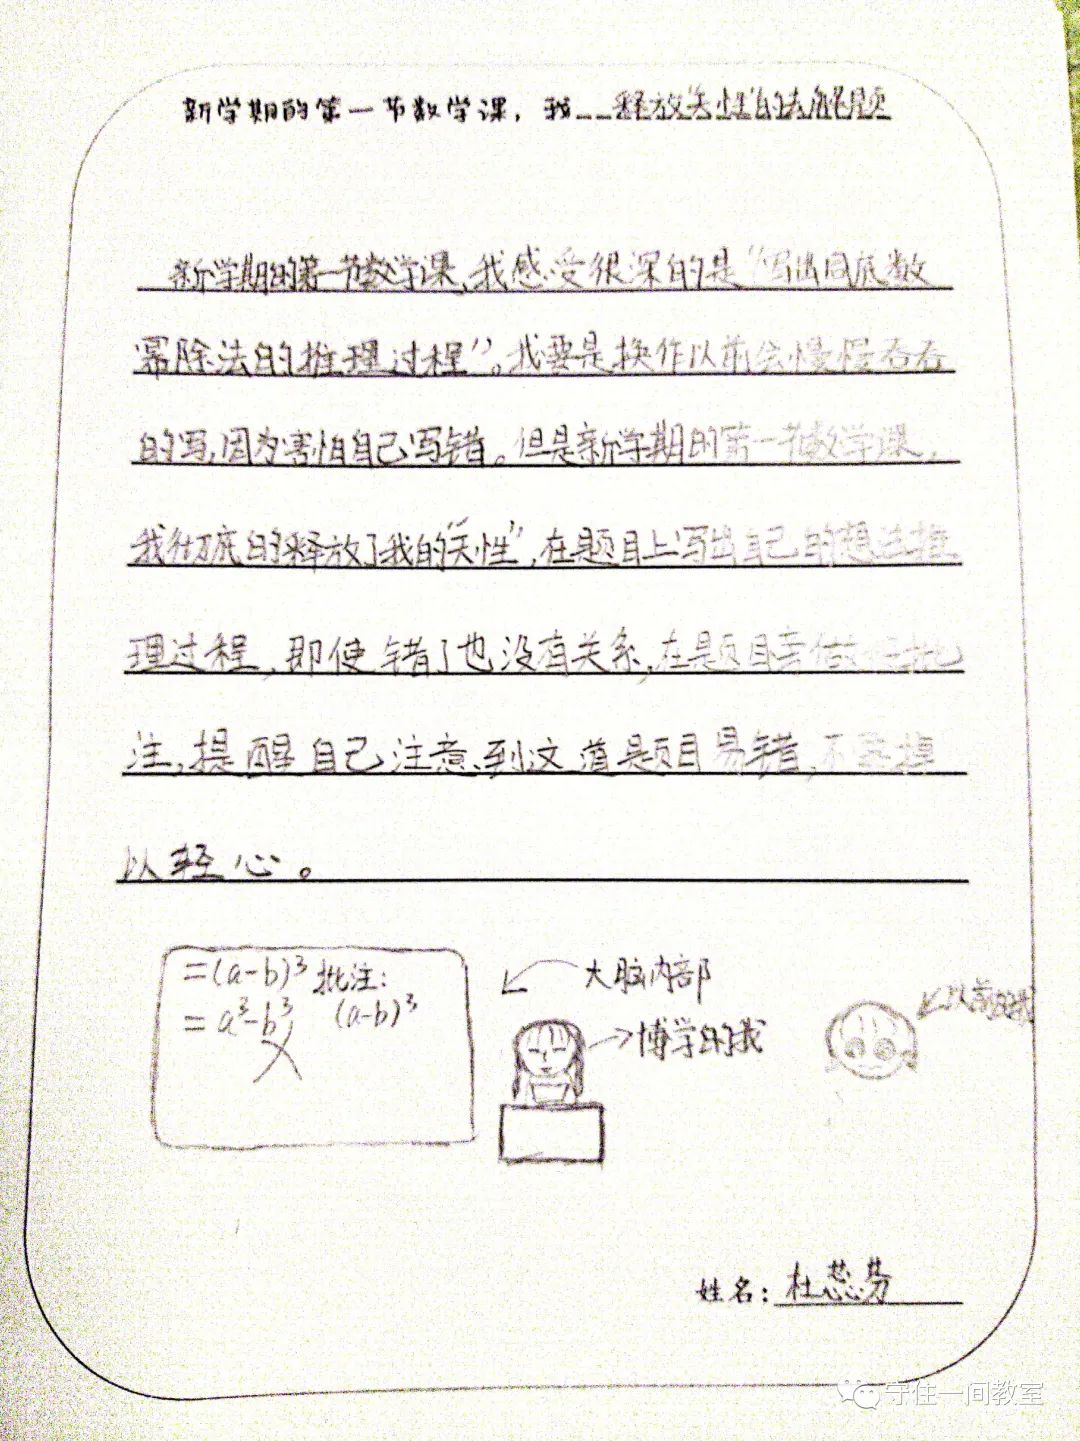 新学期的第一节数学课，我 释放“天性”的去解题
新学期的第一节数学课，我感受很深的是“写出同底数
幂除法的推理过程”。我要是换作以前会慢慢吞吞
的写，因为害怕自己写错。但是新学期的第一节数学课，
我彻底的释放了我的“天性”，在题目上写出自己的想法推
理过程，即使错了也没有关系，在题目旁做好批
注，提醒自己注意到这道题目易错，不要掉
以轻心。
=(a-b)³ 批注：
=a³-b³ (a-b)³
大脑内部
博学的我
以前的我
姓名：杜蕊芬
守住一间教室